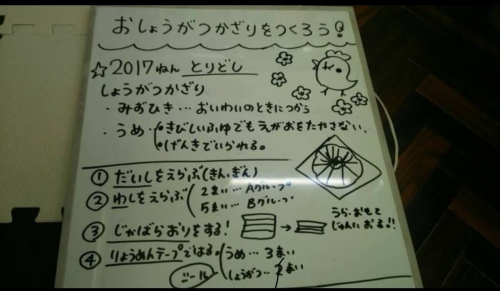 おしょうがつかざりをつくろう!
☆2017ねん とりどし
しょうがつかざり
・みずひき…おいわいのときにつかう
・うめ…きびしいふゆでもえがおをたやさない。
げんきでいられる。
① だいしをえらぶ(きん・ぎん)
② わしをえらぶ 2まい…Aグループ
5まい…Bグループ
③ じゃばらおりをする!
うら・おもて
じゅんにおる!!
④ りょうめんテープではる。 うめ…3まい
シール しょうがつ…2まい